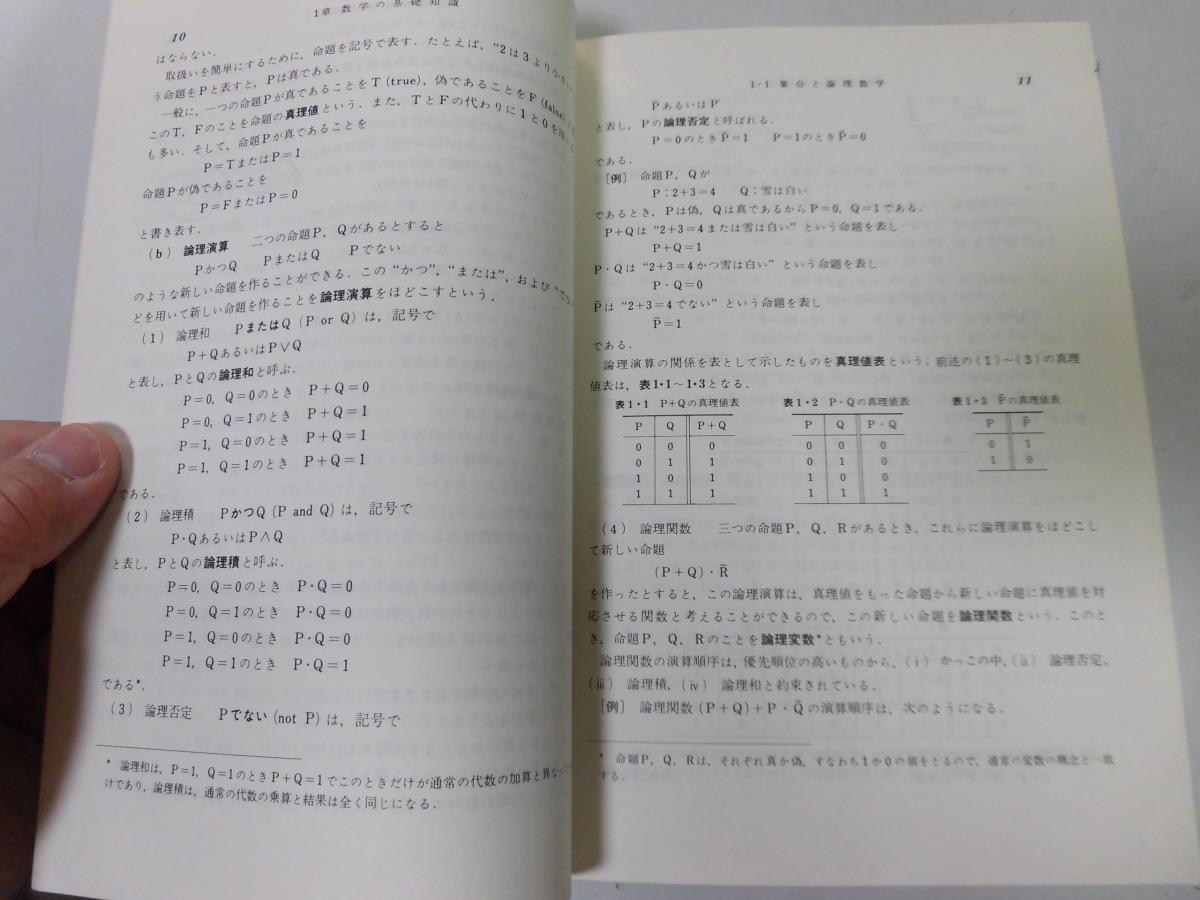 1章 数学の基礎知識
10
はならない.
取扱いを簡単にするために, 命題を記号で表す. たとえば, “2は3より小さい
う命題をPと表すと, Pは真である.
一般に, 一つの命題Pが真であることをT (true), 偽であることをF (false)
このT, Fのことを命題の真理値という. また, TとFの代わりに1と0を用い
も多い. そして, 命題Pが真であることを
P=TまたはP=1
命題Pが偽であることを
P=FまたはP=0
と書き表す.
(b) 論理演算 二つの命題P, Qがあるとすると
PかつQ PまたはQ Pでない
のような新しい命題を作ることができる. この“かつ”, “または”, および“でない
どを用いて新しい命題を作ることを論理演算をほどこすという.
(1) 論理和 PまたはQ (P or Q) は, 記号で
P+QあるいはP∨Q
と表し, PとQの論理和と呼ぶ.
P=0, Q=0のとき P+Q=0
P=0, Q=1のとき P+Q=1
P=1, Q=0のとき P+Q=1
P=1, Q=1のとき P+Q=1
である.
(2) 論理積 PかつQ (P and Q) は, 記号で
P·QあるいはP∧Q
と表し, PとQの論理積と呼ぶ.
P=0, Q=0のとき P·Q=0
P=0, Q=1のとき P·Q=0
P=1, Q=0のとき P·Q=0
P=1, Q=1のとき P·Q=1
である*.
(3) 論理否定 Pでない (not P) は, 記号で
* 論理和は, P=1, Q=1のときP+Q=1でこのときだけが通常の代数の加算と異なって
けであり, 論理積は, 通常の代数の乗算と結果は全く同じになる.
1·1 集合と論理数学 11
P̄あるいはP′
と表し, Pの論理否定と呼ばれる.
P=0のときP̄=1 P=1のときP̄=0
である.
[例] 命題P, Qが
P:2+3=4 Q:雪は白い
であるとき, Pは偽, Qは真であるからP=0, Q=1である.
P+Qは “2+3=4または雪は白い” という命題を表し
P+Q=1
P·Qは “2+3=4かつ雪は白い” という命題を表し
P·Q=0
P̄は “2+3=4でない” という命題を表し
P̄=1
である.
論理演算の関係を表として示したものを真理値表という. 前述の(1)~(3)の真理
値表は, 表1·1~1·3となる.
表1·1 P+Qの真理値表 表1·2 P·Qの真理値表 表1·3 P̄の真理値表
P Q P+Q P Q P·Q P P̄
0 0 0 0 0 0 0 1
0 1 1 0 1 0 1 0
1 0 1 1 0 0
1 1 1 1 1 1
(4) 論理関数 三つの命題P, Q, Rがあるとき, これらに論理演算をほどこし
て新しい命題
(P+Q)·R̄
を作ったとすると, この論理演算は, 真理値をもった命題から新しい命題に真理値を対
応させる関数と考えることができるので, この新しい命題を論理関数という. このと
き, 命題P, Q, Rのことを論理変数*ともいう.
論理関数の演算順序は, 優先順位の高いものから, (i) かっこの中, (ii) 論理否定,
(iii) 論理積, (iv) 論理和と約束されている.
[例] 論理関数 (P+Q)+P·Q̄の演算順序は, 次のようになる.
* 命題P, Q, Rは, それぞれ真か偽, すなわち1か0の値をとるので, 通常の変数の概念と一致
する.